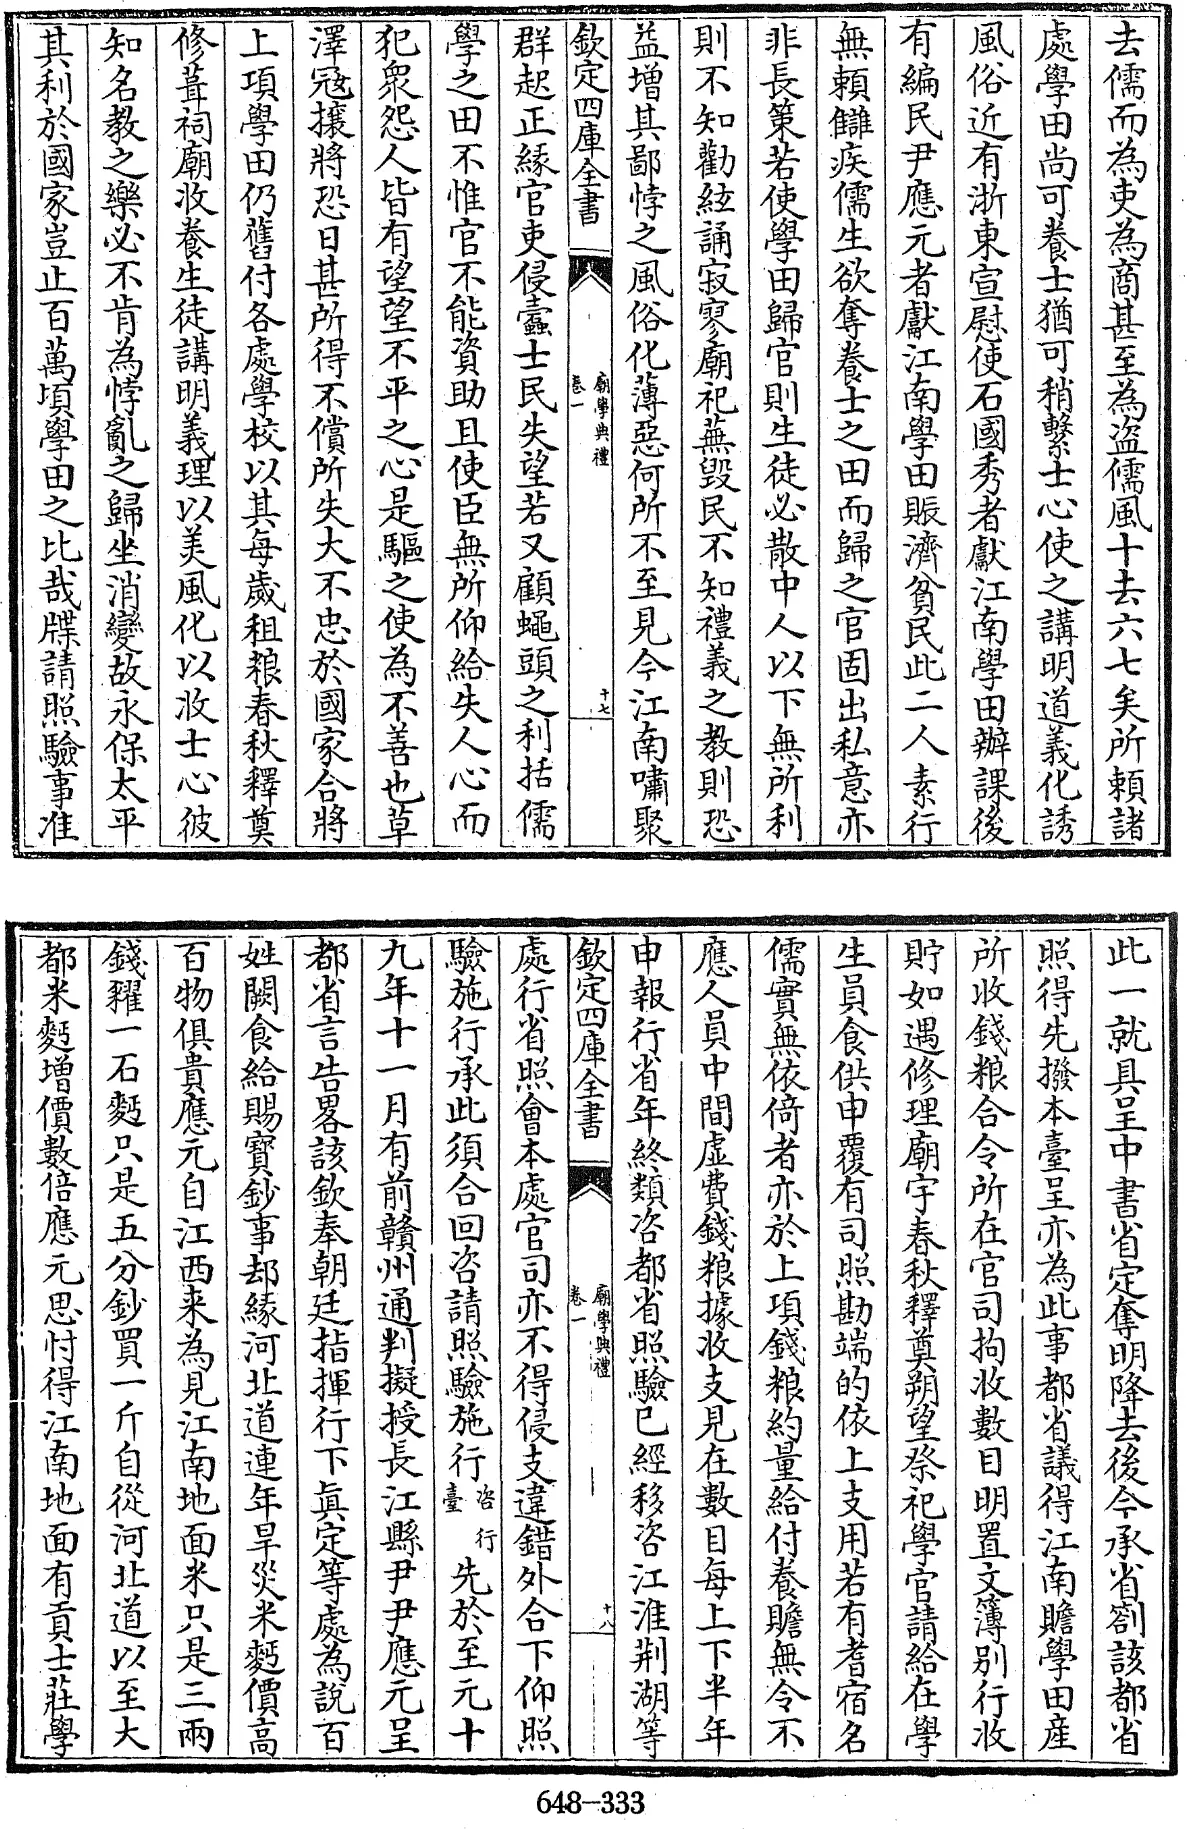 去儒而為吏為商甚至為盗儒風十去六七矣所頼諸
處學田尚可養士猶可稍繫士心使之講明道義化誘
風俗近有浙東宣慰使石國秀者獻江南學田辦課後
有編民尹應元者獻江南學田賑濟貧民此二人素行
無頼讎疾儒生欲奪養士之田而歸之官固出私意亦
非長策若使學田歸官則生徒必散中人以下無所利
則不知勸絃誦寂寥廟祀蕪毀民不知禮義之教則恐
益增其鄙悖之風俗化薄惡何所不至見今江南嘯聚
欽定四庫全書
廟學典禮
卷一
十七
群起正緣官吏侵蠧士民失望若又顧蠅頭之利括儒
學之田不惟官不能資助且使臣無所仰給失人心而
犯衆怨人皆有望望不平之心是驅之使為不善也草
澤冦攘將恐日甚所得不償所失大不忠於國家合將
上項學田仍舊付各處學校以其每歲租粮春秋釋奠
修葺祠廟收養生徒講明義理以美風化以收士心彼
知名教之樂必不肯為悖亂之歸坐消變故永保太平
其利於國家豈止百萬頃學田之比哉牒請照驗事准
此一就具呈中書省定奪明降去後今承省劄該都省
照得先撥本臺呈亦為此事都省議得江南贍學田産
所收錢粮合令所在官司拘收數目明置文簿别行收
貯如遇修理廟宇春秋釋奠朔望祭祀學官請給在學
生員食供申覆有司照勘端的依上支用若有耆宿名
儒實無依倚者亦於上項錢粮約量給付養贍無令不
應人員中間虚費錢粮據收支見在數目每上下半年
申報行省年終類咨都省照驗已經移咨江淮荆湖等
欽定四庫全書
廟學典禮
卷一
十八
處行省照會本處官司亦不得侵支違錯外合下仰照
驗施行承此須合回咨請照驗施行咨行臺先於至元十
九年十一月有前贛州通判擬授長江縣尹尹應元呈
都省言告畧該欽奉朝廷指揮行下真定等處為說百
姓闕食給賜寶鈔事却緣河北道連年旱災米麫價高
百物俱貴應元自江西来為見江南地面米只是三兩
錢糴一石麫只是五分鈔買一斤自從河北道以至大
都米麫增價數倍應元思忖得江南地面有貢士莊學
648-333